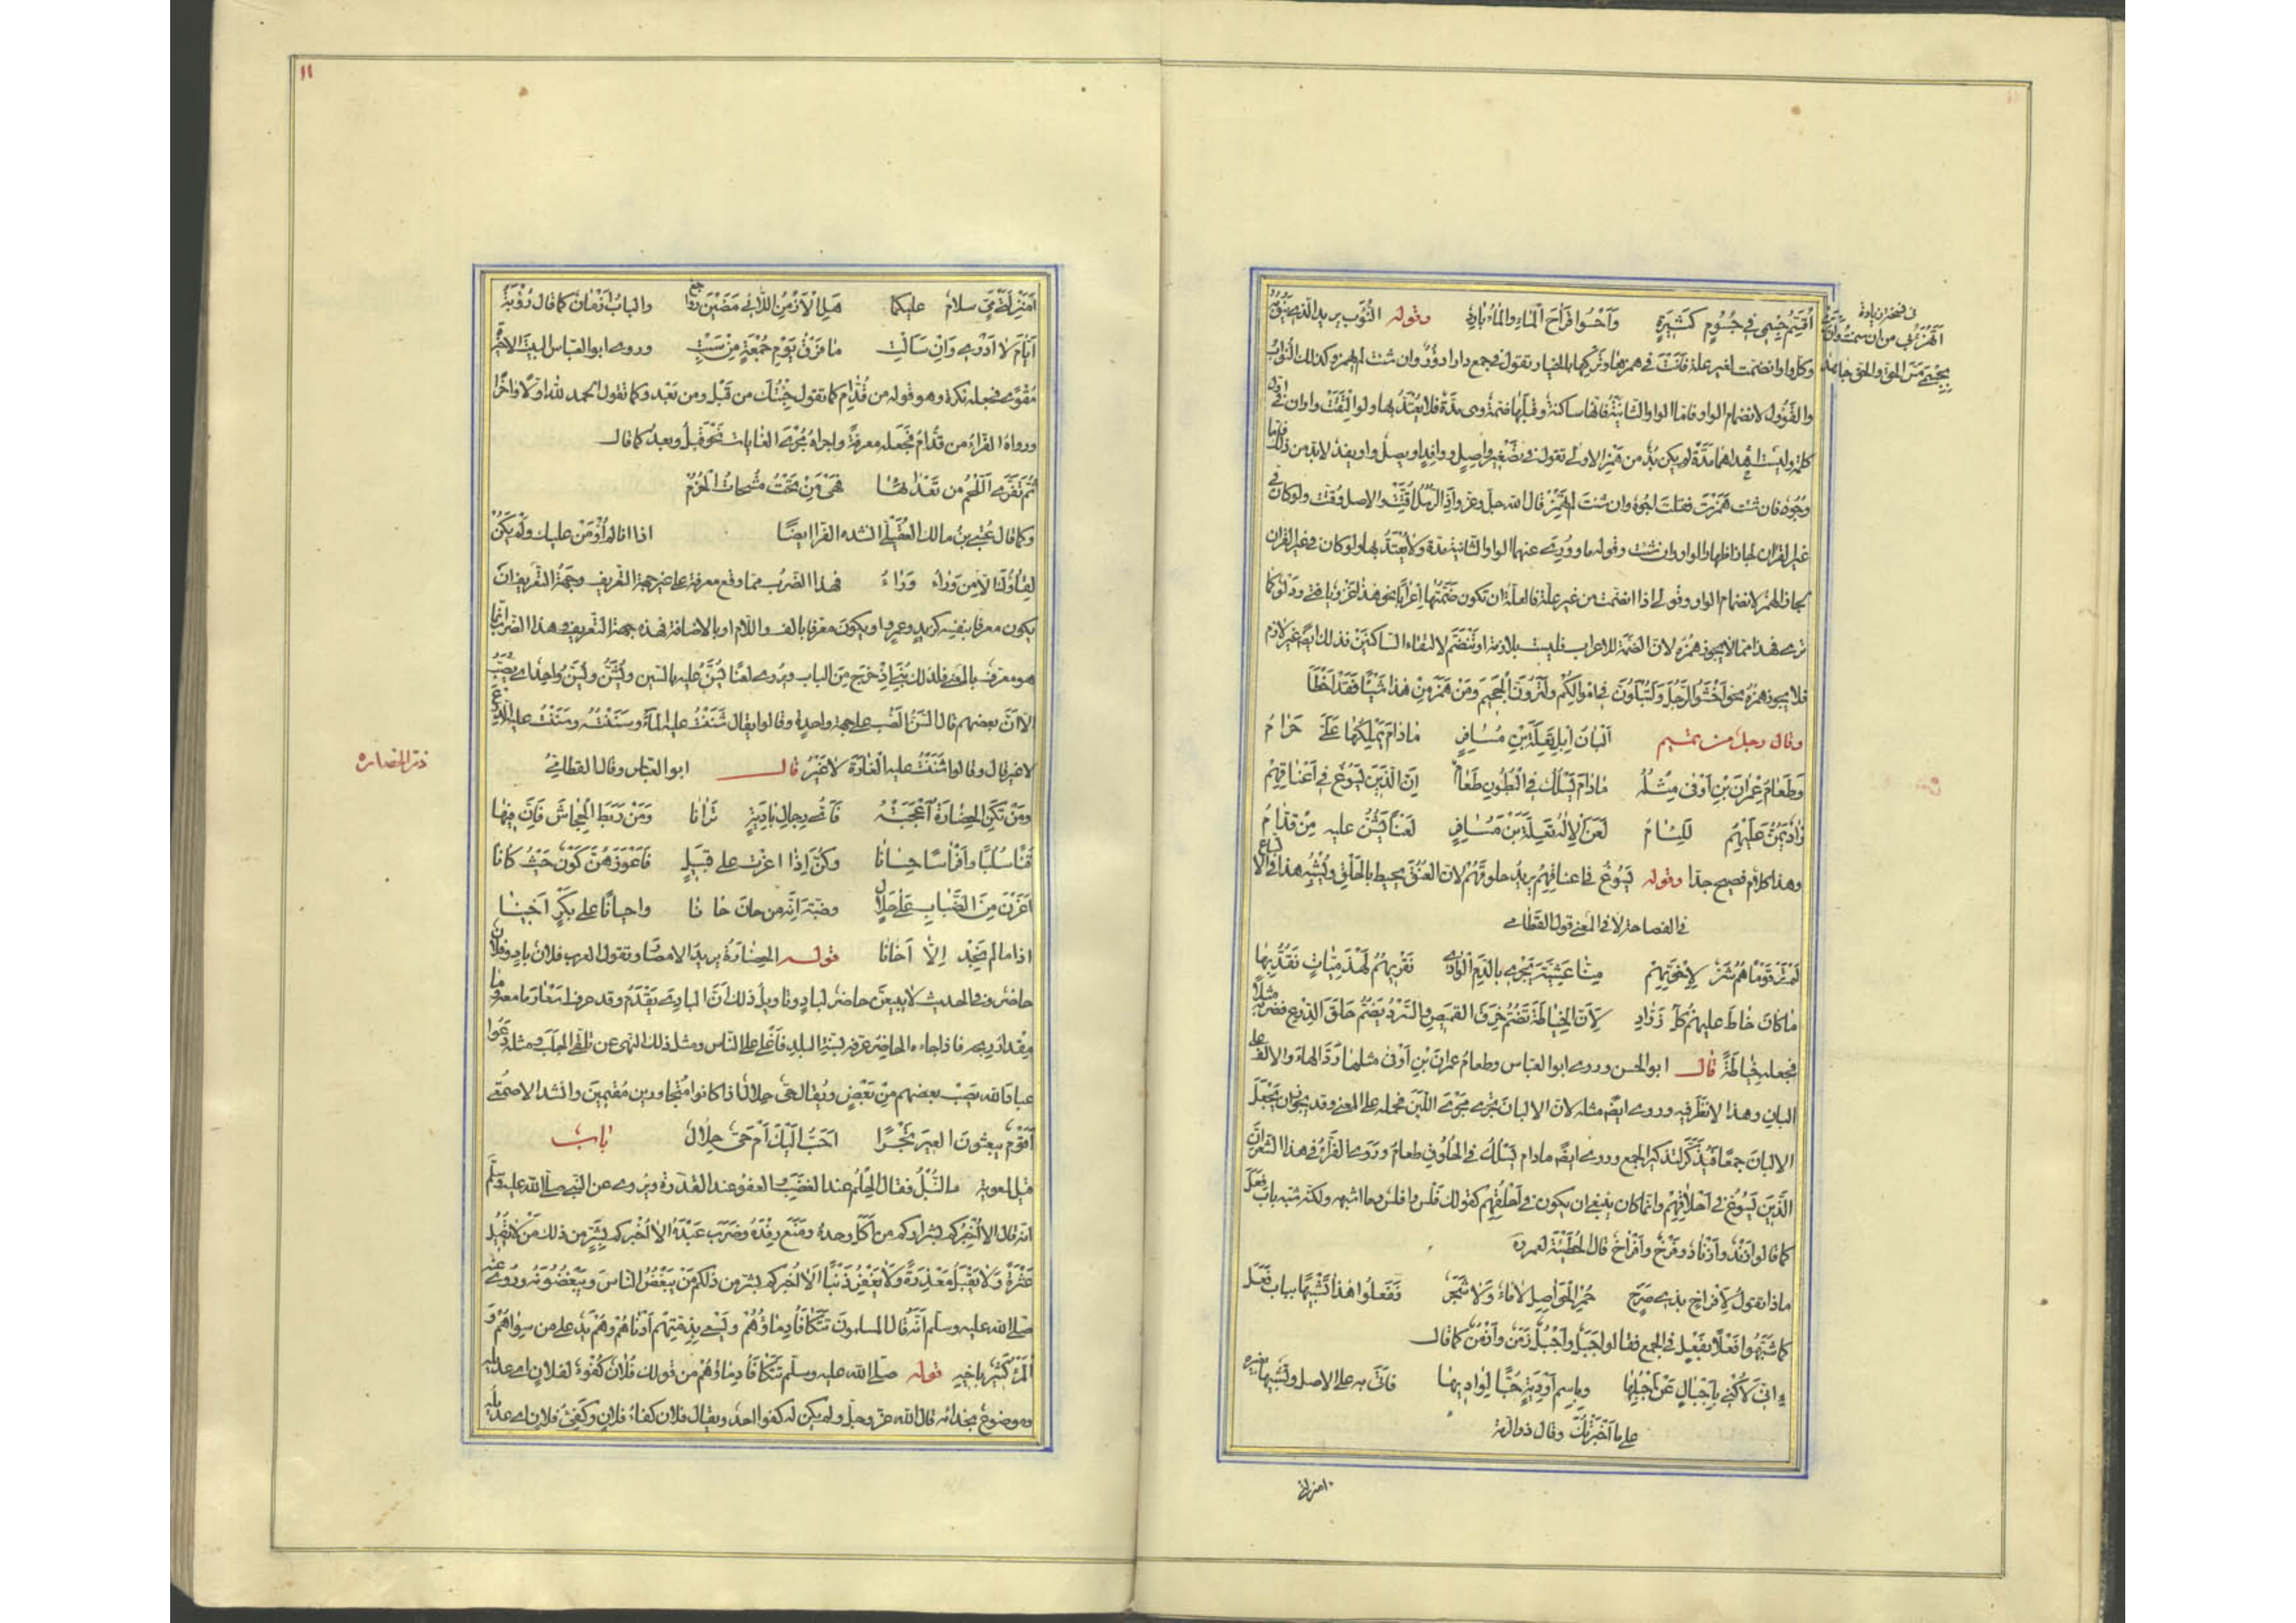 أُقَسِّمُ جِسْمِي في جُسُومٍ كَثِيرَةٍ وَأَحْسُو قَرَاحَ الْمَاءِ وَالْمَاءُ بَارِدُ وقوله النُّوَّب يريد الذي ينوبه
وكل واو انضمت لغير علة فأنت في همزها وتركها بالخيار وتقول في جمع دار ادؤر وان شئت لم تهمز وكذلك النؤب
والقؤول لانضمام الواو فاما الواو الثانية فانها ساكنة وقبلها ضمة وهي مدة فلا يعتد بها ولو التقت واوان في اول
كلمة وليست احداهما مدة لم يكن بد من همز الاولى تقول في تصغير واصل وواقد اويصل واويقد لا بد من ذلك فاما
وجوه فان شئت همزت فقلت اجوه وان شئت لم تهمز قال الله جل وعز وإذا الرسل أقتت والاصل وقتت ولو كان في
غير القرآن لجاز اظهار الواو ان شئت وقوله ما ووري عنهما الواو الثانية مدة ولا يعتد بها ولو كان في غير القرآن
لجاز الهمز لانضمام الواو وقولي اذا انضمت من غير علة فالعلة ان تكون ضمتها اعرابا نحو هذا غزو يا فتى ودلو كما
ترى فهذا مما لا يجوز همزه لان الضمة للاعراب فليست بلازمة او تنضم لالتقاء الساكنين فذلك ايضا غير لازم
فلا يجوز همزه نحو اخشوا الرجل ولتبلون في اموالكم ولترون الجحيم ومن همز من هذا شيئا فقد اخطأ
وقال رجل من تميم البان ابل تعلة بن مسافر ما دام يملكها علي حرام
وطعام عمران بن اوفى مثله ما دام يسلك في البطون طعام ان الذين يسوغ في اعناقهم
زاد يمن عليهم للئام لعن الاله تعلة بن مسافر لعنا يشن عليه من قدام
وهذا كلام فصيح جدا وقوله يسوغ في اعناقهم يريد حلوقهم لان العنق يحيط بالحلق ويشبه هذا في الاتساع
في الفصاحة لا في المعنى قول القطامي
لم تر قوما هم شر لاخوتهم منا عشية يجري بالدم الوادي نقريهم لهذميات نقد بها
ما كان خاط عليهم كل زراد لان الخياطة تضم خرق القميص والسرد يضم حلق الدرع فضربه مثلا
فجعله خياطة قال ابو الحسن وروى ابو العباس وطعام عمران بن اوفى مثلها رد الهاء والالف على
البان وهذا لا نظر فيه وروى ايضا مثله لان الالبان تجري مجرى اللبن فحمله على المعنى وقد يجوز ان يجعل
الالبان جمعا فيذكر لتذكير الجمع وروى ايضا ما دام يسلك في الحلوق طعام وروى الفراء في هذا الشعر ان
الذين يسوغ في احلاقهم وانما كان ينبغي ان يكون في احلقهم كقولك فلس وافلس وما اشبهه ولكنه شبه باب فعل
كما قالوا زند وازناد وفرخ وافراخ قال الحطيئة لعمر ره
ماذا تقول لافراخ بذي مرخ حمر الحواصل لا ماء ولا شجر ففعلوا هذا تشبيها بباب فعل
كما شبهوا فعلا بفعل في الجمع فقالوا جبل واجبل وزمن وازمن كما قال
اني لاكني باجبال عن اجبلها وباسم اودية حبا لواديها فاتى به على الاصل وتشبيها بغيره
على ما اخبرتك وقال ذو الرمة
أمنزلتي
امنزلتي مي سلام عليكما هل الازمن اللائي مضين رواجع والباب ازمان كما قال رؤبة
ايام لا ادري وان سالت ما فرق يوم جمعة من سبت وروى ابو العباس البيت الاخير
مقوى فجعله نكرة وهو قوله من قدام كما تقول جئتك من قبل ومن بعد وكما تقول الحمد لله اولا واخرا
ورواه الفراء من قدام فجعله معرفة واجراه مجرى الغايات نحو قبل وبعد كما قال
ثم تفرى اللحم من تعدائها فهي من تحت مشيحات الحزم
وكما قال عتي بن مالك العقيلي انشده الفراء ايضا اذا انا لم اومن عليك ولم يكن
لقاؤك الا من وراء وراء فهذا الضرب مما وقع معرفة على غير جهة التعريف وجهة التعريف ان
يكون معرفا بنفسه كزيد وعمرو او يكون معرفا بالف واللام او بالاضافة فهذه جهة التعريف وهذا الضرب انما
هو معرف بالمعنى فلذلك بني اذ خرج من الباب ويروى لعنا يشن عليه بالسين ويشن ويسن واحد اي يصب
الا ان بعضهم قال السن الصب على جهة واحدة وقالوا يقال شننت عليه الماء وسننته وسننت عليه الدرع
لا غير قال وقالوا شننت عليه الغارة لا غير قال ابو العباس وقال القطامي
ذكر الحضارة
ومن تكن الحضارة اعجبته فاي رجال بادية ترانا ومن ربط الجحاش فان فينا
قنا سلبا وافراسا حسانا وكن اذا اغرن على قبيل فاعوزهن كون حيث كانا
اغرن من الضباب على حلال وضبة انه من حان حانا واحيانا على بكر اخينا
اذا ما لم نجد الا اخانا قوله الحضارة يريد الامصار وتقول العرب فلان باد وفلان
حاضر وفي الحديث لا يبيعن حاضر لباد وتاويل ذلك ان البادي يقدم وقد عرف اسعار ما معه وما
مقدار ربحه فاذا جاءه الحاضر عرفه سنة البلد فاغلى على الناس ومثل ذلك النهي عن تلقي الجلب ومثله دعوا
عباد الله يصب بعضهم من بعض ويقال حي حلال اذا كانوا متجاورين مقيمين وانشد الاصمعي
اقوم يبعثون العير تجرا احب اليك ام حي حلال باب
قيل لمعوية ما النبل فقال الحلم عند الغضب والعفو عند القدرة ويروى عن النبي صلى الله عليه وسلم
انه قال الا اخبركم بشراركم من اكل وحده ومنع رفده وضرب عبده الا اخبركم بشر من ذلك من لا يقيل
عثرة ولا يقبل معذرة ولا يغفر ذنبا الا اخبركم بشر من ذلكم من يبغض الناس ويبغضونه وروي عنه
صلى الله عليه وسلم انه قال المسلمون تتكافأ دماؤهم ويسعى بذمتهم ادناهم وهم يد على من سواهم و
المرء كثير باخيه قوله صلى الله عليه وسلم تتكافأ دماؤهم من قولك فلان كفوء لفلان اي عديله
وموضوع بحذائه قال الله عز وجل ولم يكن له كفوا احد ويقال فلان كفاء فلان وكفيء فلان اي عديله